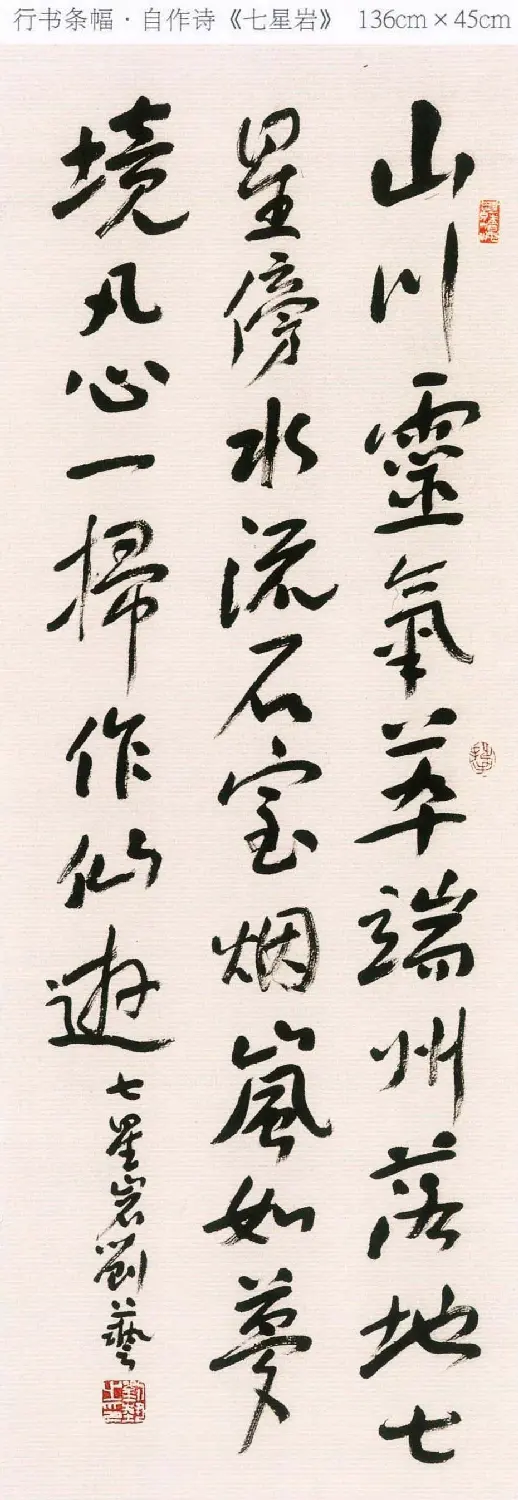 行书条幅·自作诗《七星岩》 136cm×45cm
山川靈氣萃端州落地七
星傍水流石室烟嵐如夢
境凡心一掃作仙遊
七星岩劉藝